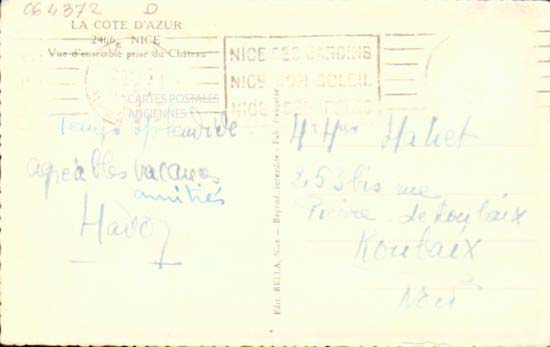 064372 D
LA COTE D'AZUR
2466 NICE
Vue d'ensemble prise du Château
NICE SES JARDINS
NICE SON SOLEIL
NICE SES
CARTES POSTALES
ANCIENNES
Temps splendide
agréables vacances
amitiés
Mr Mme
253 bis rue
Pierre de Roubaix
Roubaix
Nord
Edit. RELLA, Nice - Reprod. interdite - Fab. française